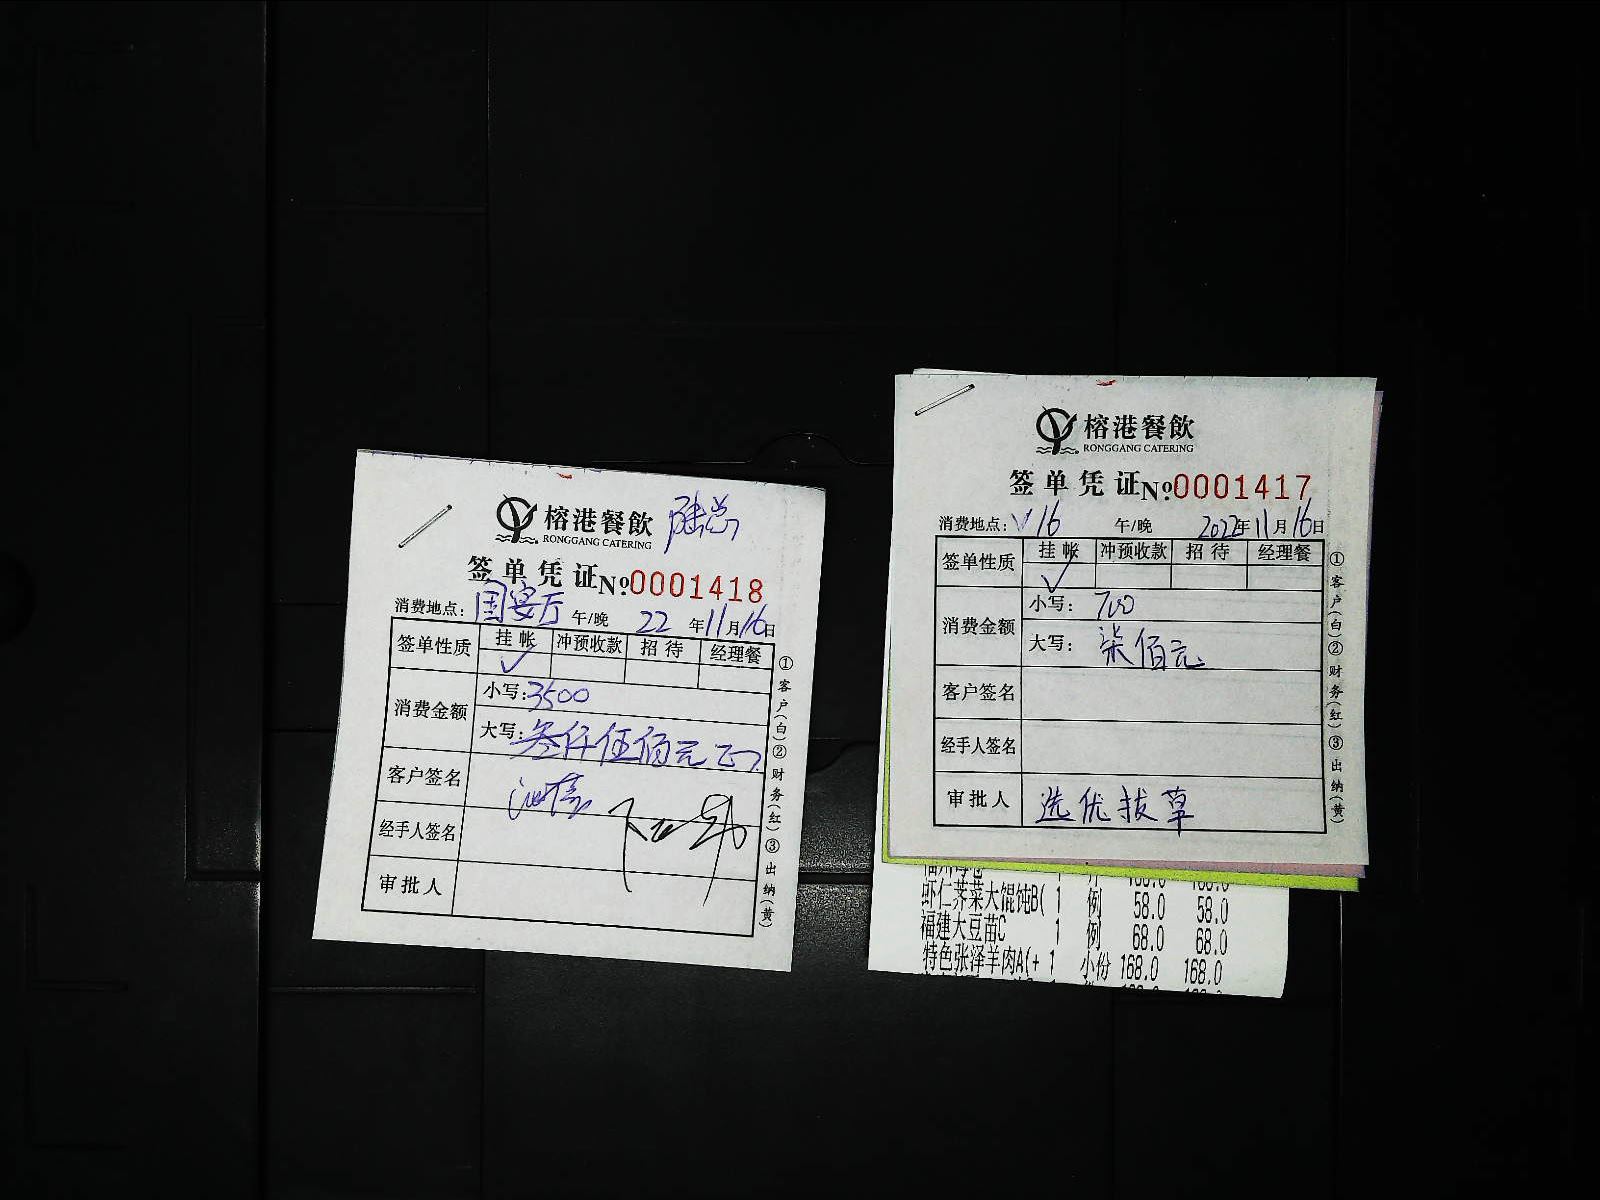 榕港餐飲 陆总
RONGGANG CATERING
签单凭证 №0001418
消费地点: 国宴厅 午/晚 22 年 11 月 16 日
签单性质 挂帐 冲预收款 招待 经理餐
✓
消费金额 小写: 3500
大写: 叁仟伍佰元正
客户签名
经手人签名
审批人
①客户(白)②财务(红)③出纳(黄)
榕港餐飲
RONGGANG CATERING
签单凭证 №0001417
消费地点: V16 午/晚 2022年 11 月 16 日
签单性质 挂帐 冲预收款 招待 经理餐
✓
消费金额 小写: 700
大写: 柒佰元
客户签名
经手人签名
审批人 选优拔草
①客户(白)②财务(红)③出纳(黄)
虾仁荠菜大馄饨B( 1 例 58.0 58.0
福建大豆苗C 1 例 68.0 68.0
特色张泽羊肉A(+ 1 小份 168.0 168.0